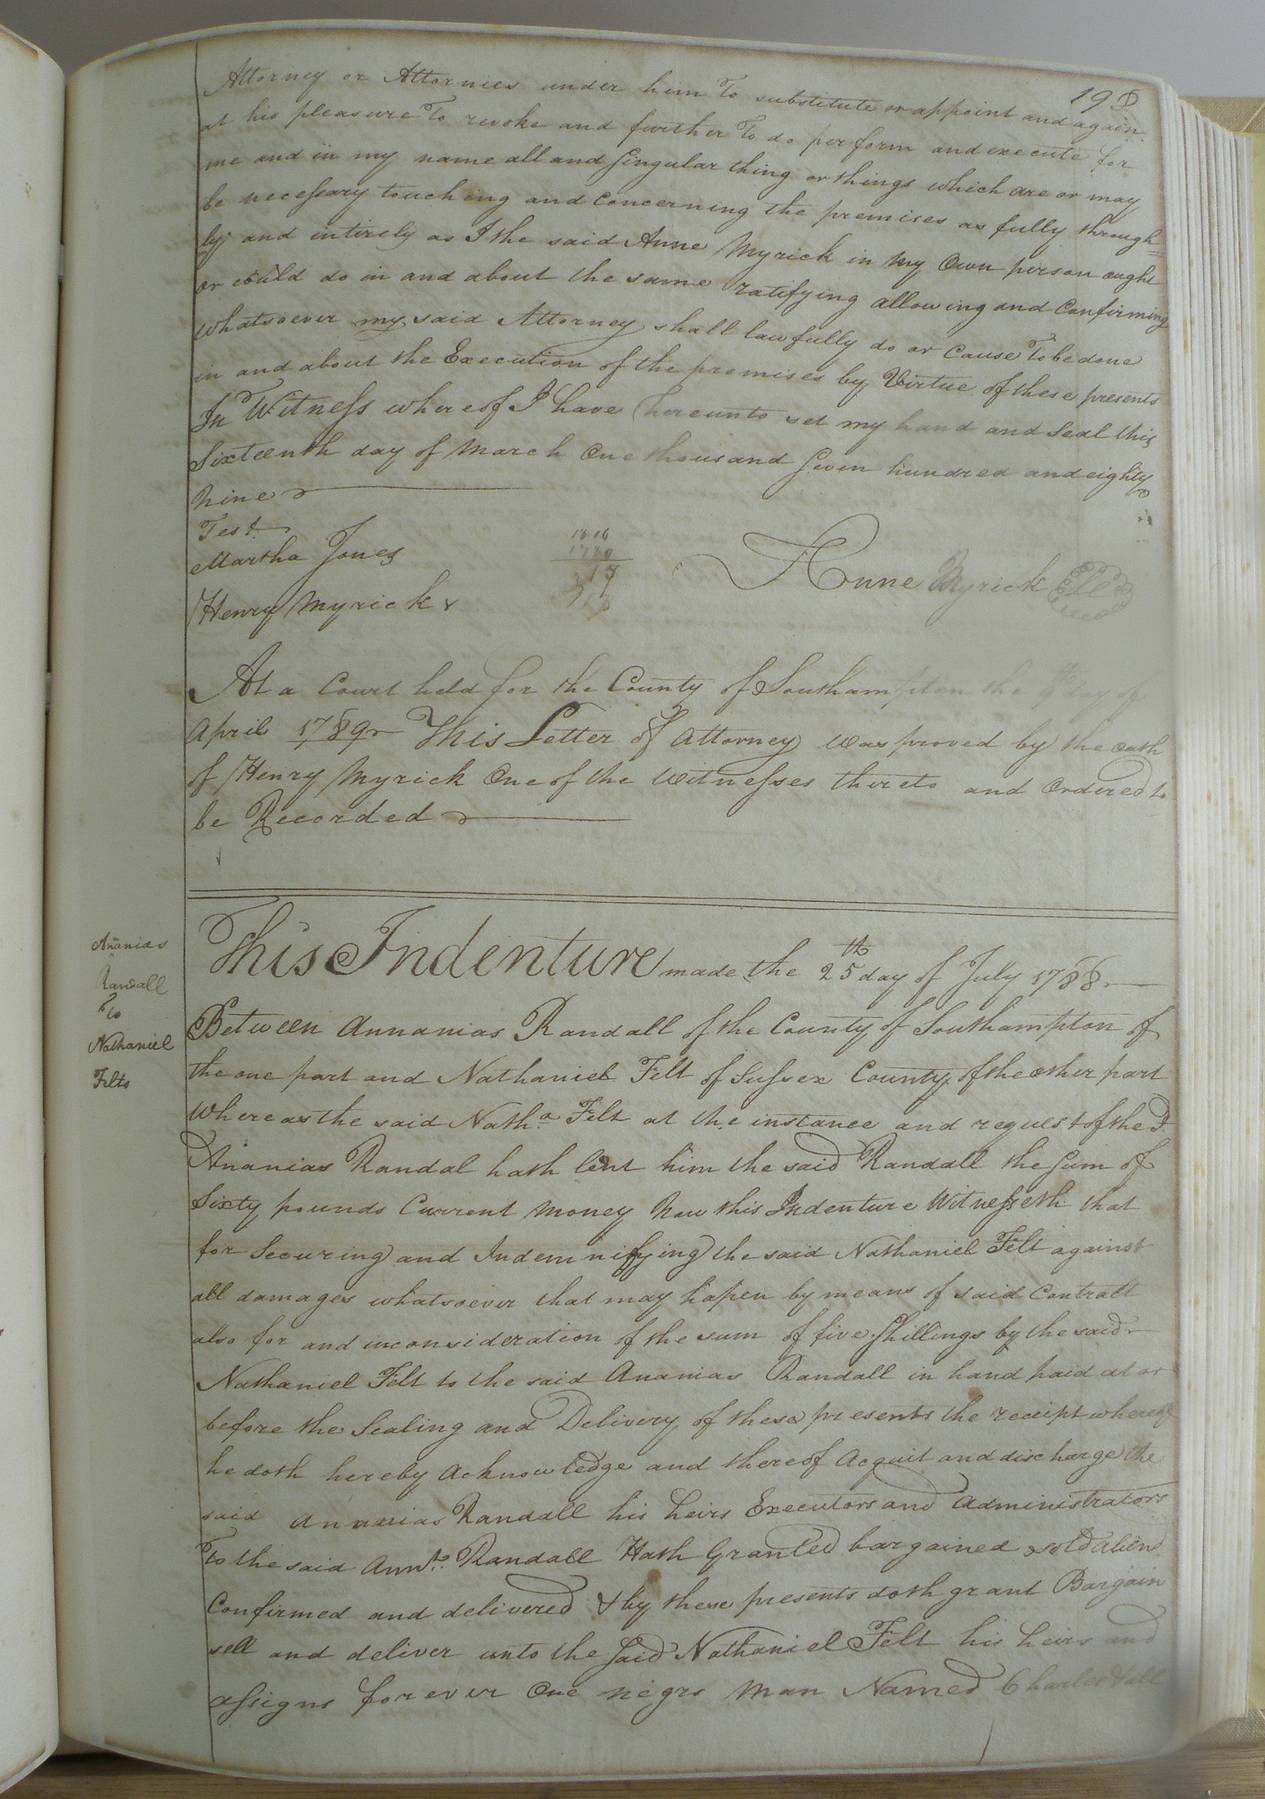 198
Attorney or Attornies under him To substitute or appoint and again
at his pleasure To revoke and further To do perform and execute for
me and in my name all and Singular thing or things which are or may
be necessary touching and Concerning the premises as fully through=
ly and intirely as I the said Anne Myrick in my Own person ought
or could do in and about the same ratifying allowing and Confirming
whatsoever my said Attorney shall lawfully do or Cause To be done
in and about the Execution of the premises by Virtue of these presents
In Witness whereof I have hereunto set my hand and Seal this
Sixteenth day of March One thousand Seven hundred and eighty
Nine
Test.
Martha Jones
Henry Myrick
Anne Myrick
At a Court held for the County of Southampton the day of
April 1789 This Letter of Attorney was proved by the oath
of Henry Myrick One of the Witnesses thereto and Ordered to
be Recorded
Ananias
Randall
To
Nathaniel
Felts
This Indenture made the 25th day of July 1788
Between Annanias Randall of the County of Southampton of
the one part and Nathaniel Felt of Sussex County of the other part
Whereas the said Natha. Felt at the instance and request of the sd
Ananias Randal hath lent him the said Randall the Sum of
Sixty pounds Current Money Now this Indenture Witnesseth that
for Securing and Indemnifying the said Nathaniel Felt against
all damages whatsoever that may hapen by means of said Contract
also for and inconsideration of the sum of five Shillings by the said
Nathaniel Felt to the said Ananias Randall in hand paid at or
before the Sealing and Delivery of these presents the receipt whereof
he doth hereby Acknowledge and thereof Acquit and discharge the
said Ananias Randall his heirs Executors and Administrators
To the said Randall Hath Granted bargained sold Aliend
Confirmed and delivered & by these presents doth grant Bargain
sell and deliver unto the Said Nathaniel Felt his heirs and
assigns forever One negro Man Named Charles